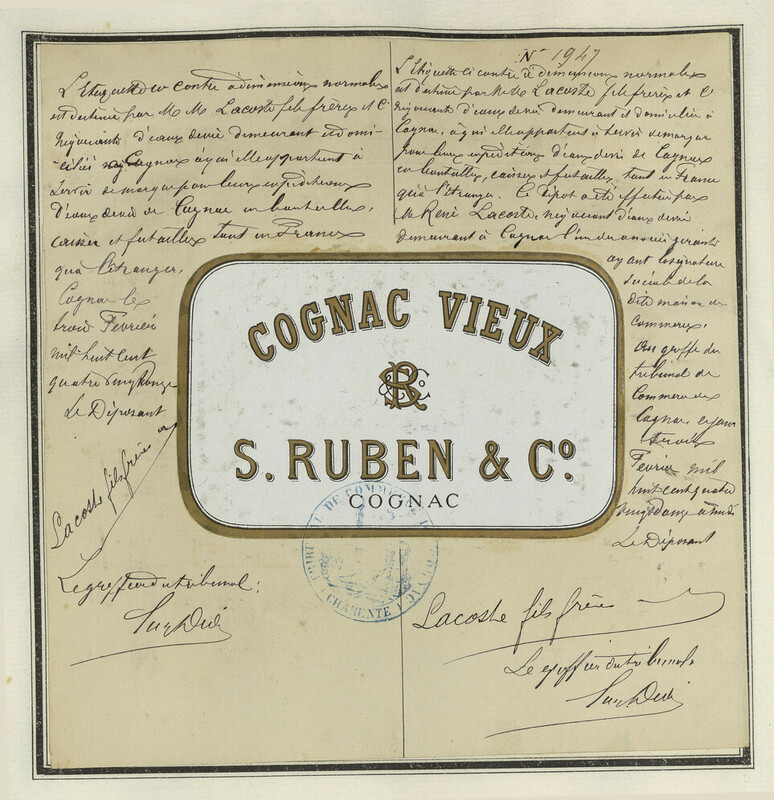 L'Etiquette ci contre à dimensions normales
est destinée par M M Lacoste fils frères et Cie
négociants d'eaux de vie demeurant et domi-
-ciliés Cognac à qui elle appartient à
servir de marque pour leurs expéditions
d'eaux de vie de Cognac en bouteilles,
caisses et futailles tant en France
qu'à l'étranger.
Cognac le
trois Février
mil huit cent
quatre vingt onze
Le Déposant
Lacoste fils frères
Le greffier du tribunal:
N° 1947
L'Etiquette ci contre à dimensions normales
est destinée par M M Lacoste fils frères et Cie
négociants d'eaux de vie demeurant et domiciliés à
Cognac, à qui elle appartient à servir de marque
pour leurs expéditions d'eaux de vie de Cognac
en bouteilles, caisses et futailles tant en France
qu'à l'étranger. Le dépôt a été effectué par
Mr René Lacoste, négociant d'eaux de vie
demeurant à Cognac l'un des associés gérants
ayant la signature
sociale de la
dite maison de
Commerce.
Au greffe du
tribunal de
Commerce de
Cognac le jour
trois
Février mil
huit cent quatre
vingt onze à midi
Le Déposant
Lacoste fils frères
Le greffier du tribunal
COGNAC VIEUX
RC
S. RUBEN & Co.
COGNAC
TRIBUNAL DE COMMERCE DE COGNAC
CHARENTE